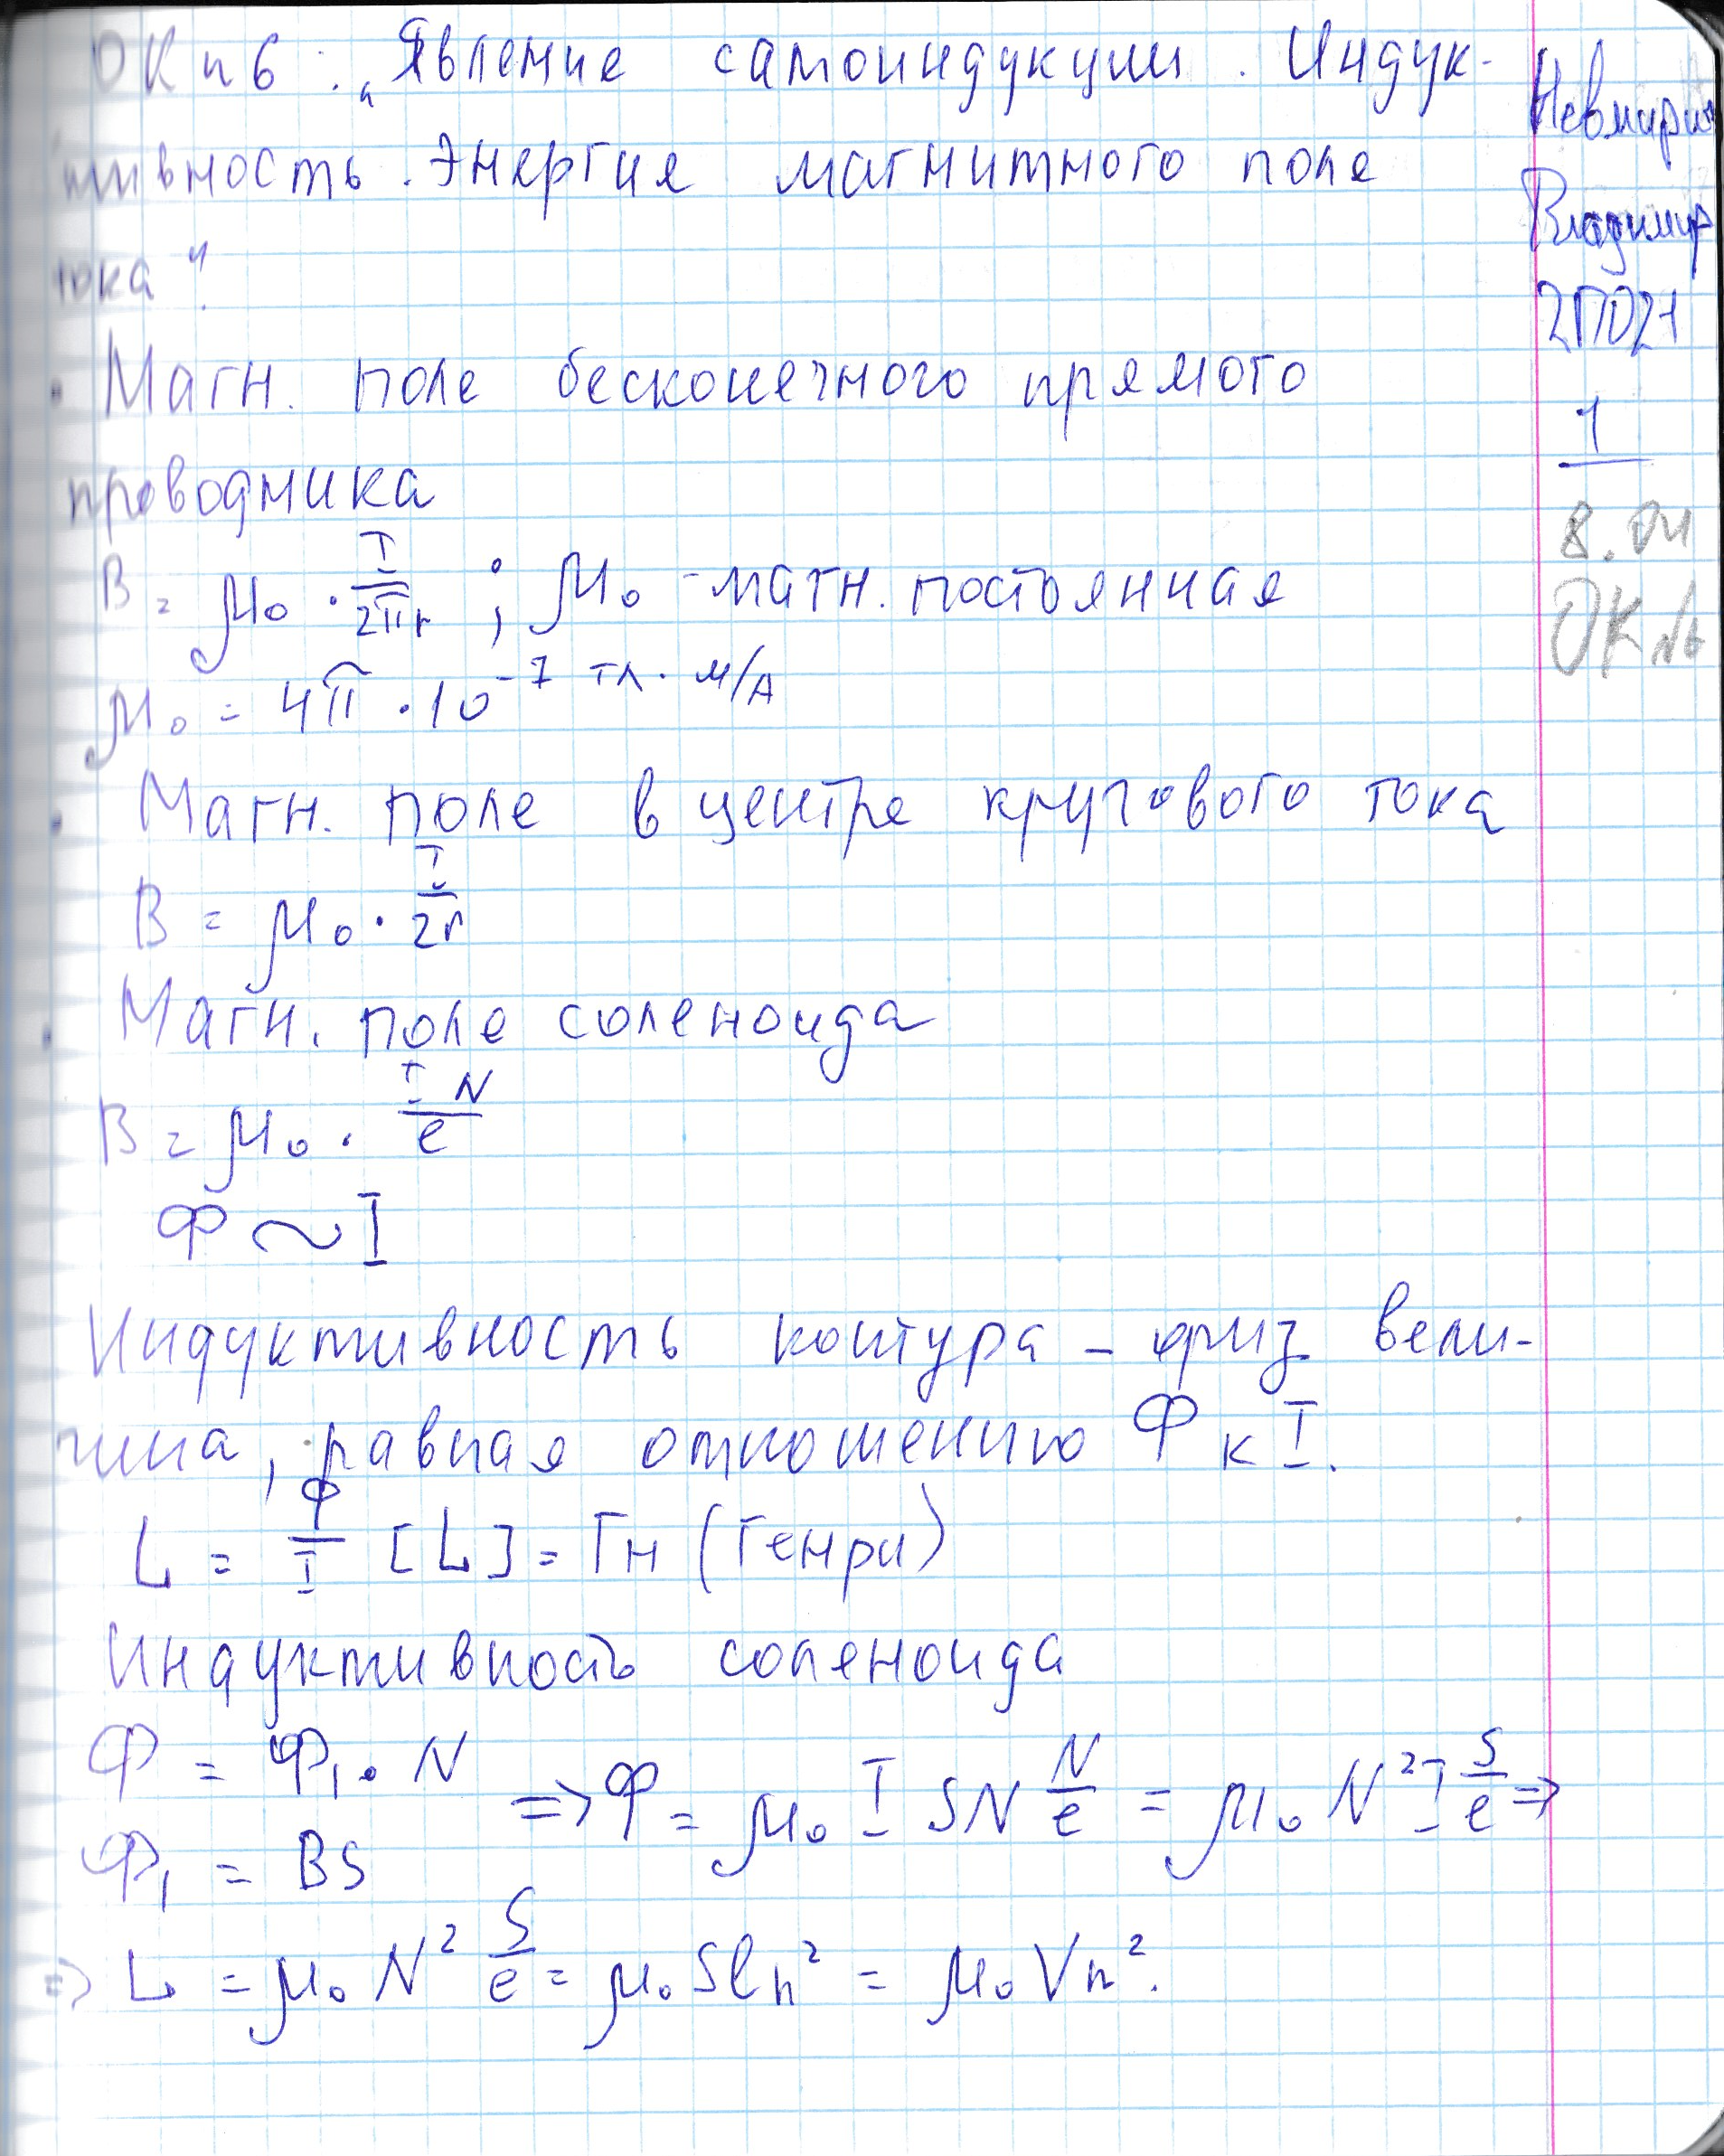 ОК n 6 : „Явление самоиндукции. Индук-
тивность. Энергия магнитного поля
тока".
• Магн. поле бесконечного прямого
проводника
B = μ₀ · I/2πr ; μ₀ - магн. постоянная
μ₀ = 4π · 10⁻⁷ Тл · м/А
• Магн. поле в центре кругового тока
B = μ₀ · I/2r
• Магн. поле соленоида
B = μ₀ · IN/l
Ф ~ I
Индуктивность контура – физ. вели-
чина, равная отношению Ф к I.
L = Ф/I [L] = Гн (Генри)
Индуктивность соленоида
Ф = Ф₁ · N
Ф₁ = BS
=> Ф = μ₀ I SN N/l = μ₀ N² I S/l =>
=> L = μ₀ N² S/l = μ₀ Sl n² = μ₀ V n².
Владимир
2ПО21
1
8.04
ОК №6